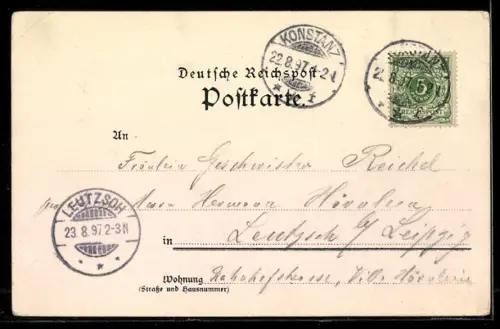 KONSTANZ
22.8.97.1-2N
* 1 *
KONSTANZ
22.8.97
5
Deutsche Reichspost
Postkarte.
An
Fräulein Geschwister Reichel
Herrn Hermann
LEUTZSCH
23.8.97 2-3N
* * *
in Leutzsch b/ Leipzig
Wohnung Bahnhofstrasse, Villa
(Straße und Hausnummer)